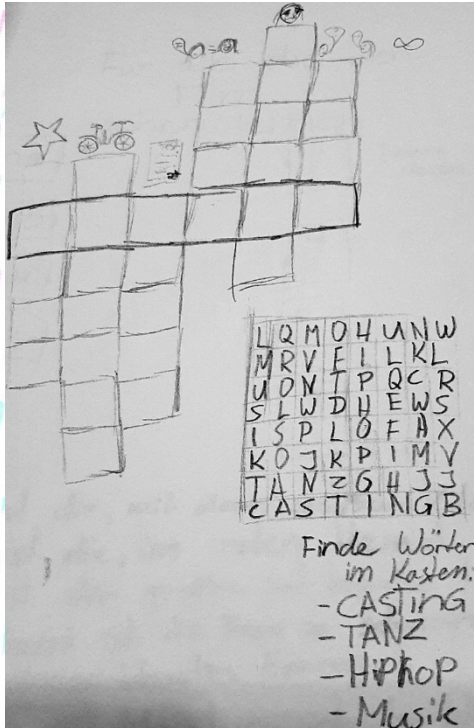 L Q M O H U N W
M R V F I L K L
U O N T P Q C R
S L W D H E W S
I S P L O F A X
K O J K P I M V
T A N Z G H J J
C A S T I N G B
Finde Wörter
im Kasten:
- CASTING
- TANZ
- HipHOP
- Musik